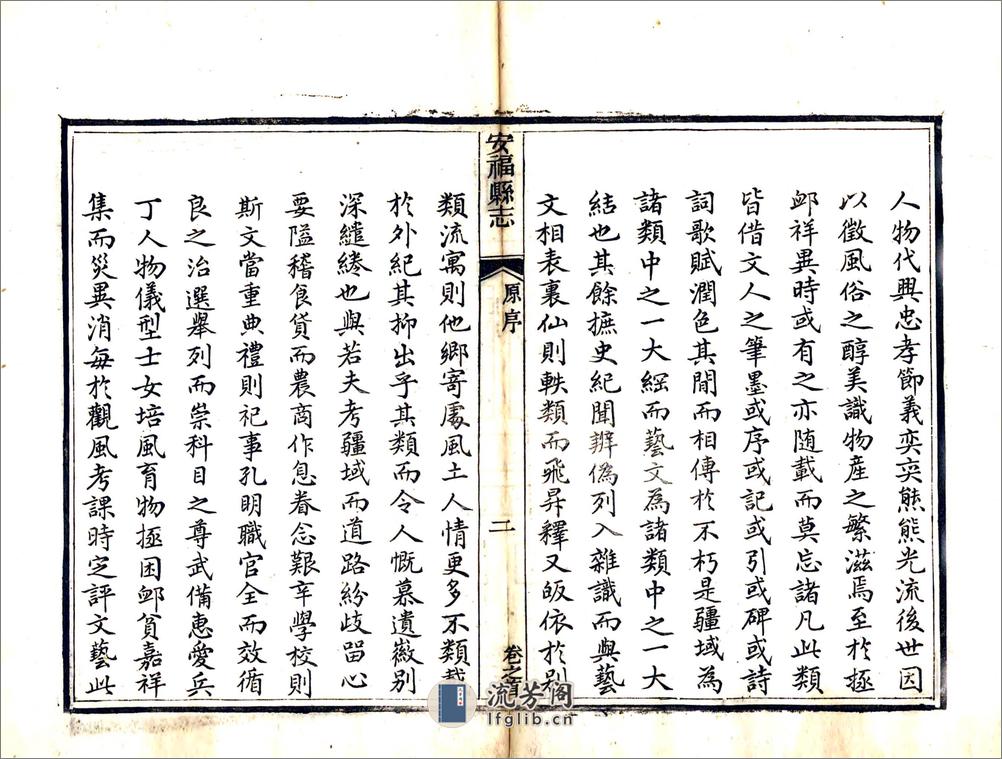 人物代興忠孝節義奕奕熊熊光流後世因
以徵風俗之醇美識物産之繁滋焉至於極
邮祥異時或有之亦随載而莫忘諸凡此類
皆借文人之筆墨或序或記或引或碑或詩
詞歌賦潤色其間而相傳於不朽是疆域為
諸類中之一大綱而藝文為諸類中之一大
結也其餘摭史紀聞辨偽列入雜識而與藝
文相表裏仙則軼類而飛昇釋又皈依於别
安福縣志
原序
二
卷之首
類流寓則他鄉寄處風土人情更多不類載
於外紀其抑出乎其類而令人慨慕遺徽别
深繾綣也與若夫考疆域而道路紛歧留心
要隘稽食貨而農商作息眷念艱辛學校則
斯文當重典禮則祀事孔明職官全而效循
良之治選舉列而崇科目之尊武備惠愛兵
丁人物儀型士女培風育物拯困邮貧嘉祥
集而災異消每於觀風考課時定評文藝此
流芳阁
lfglib.cn